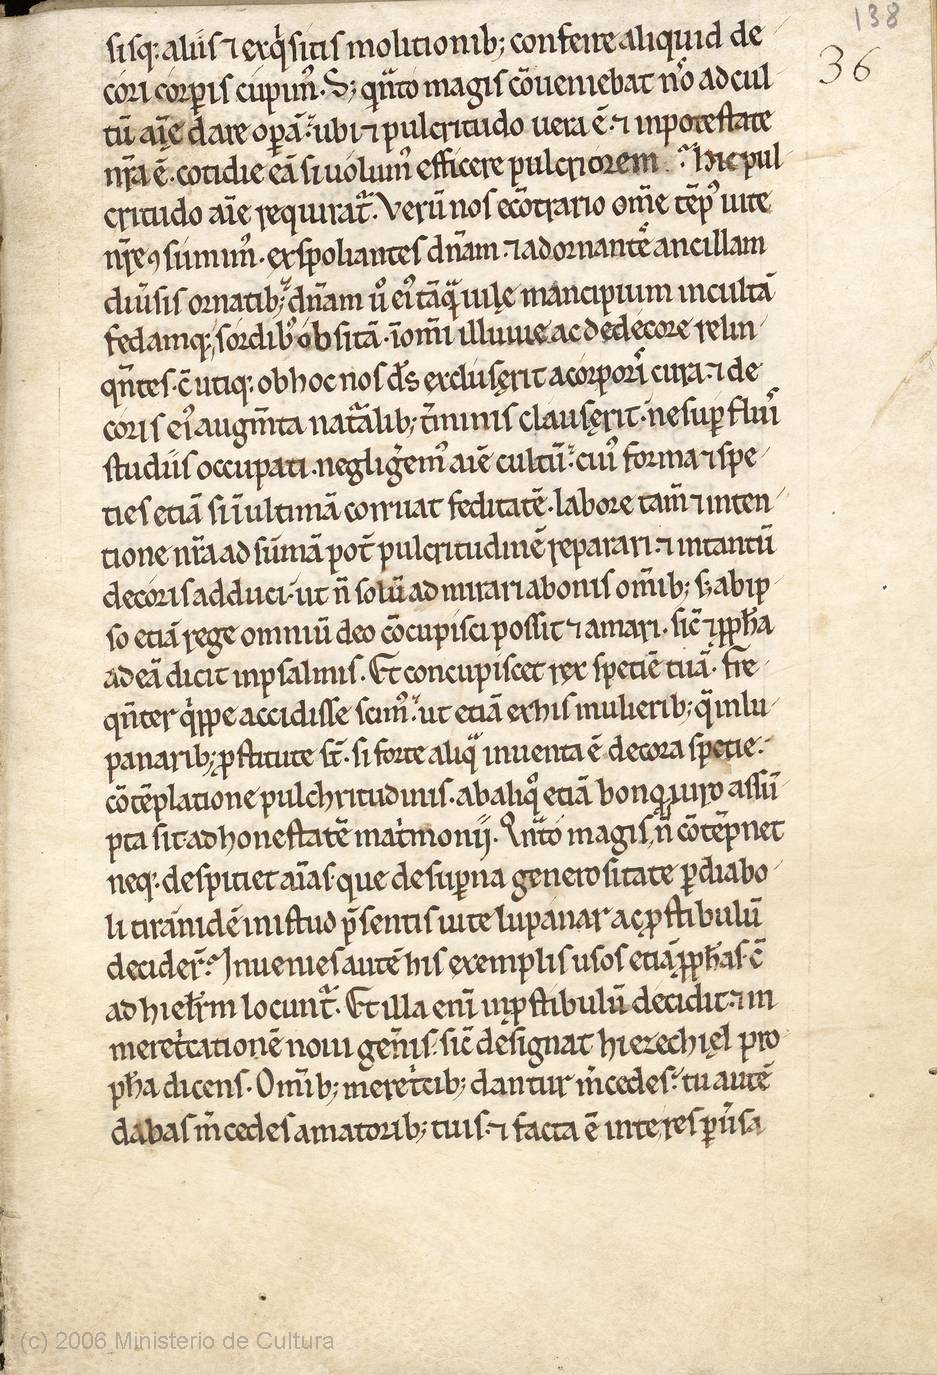 138
36
sisq; aliis ⁊ exq̇sitis molitionib; conferre aliquid de
cori corꝑis cupim᷒. S; qn̄to magis cōueniebat nr̄o ad cul
tū aīe dare oꝑā: ubi ⁊ pulcritudo uera ē. ⁊ in potestate
nr̄a ē. cotidie eā si uolum᷒ efficere pulcriorem. Hic pul
critudo aīe requirat᷑. Verū nos ecōtrario om̄e tēp᷒ uite
nr̄e ꝯsumim᷒. exspoliantes dn̄am. ⁊ adornantes ancillam
diu̅sis ornatib; dn̄am u̅ ei᷒ tāq̄ uile mancipium incultā
fedamq; sordib᷒ obsitā. ī om̄i illuuie ac dedecore relin
qn̄tes. c̄ utiq; ob hoc nos ds̄ excluserit a corporis cura. ⁊ de
coris ei᷒ augm̄ta nat᷑alib; t̄minis clauserit. ne suꝑfluis
studiis occupati. negligerem᷒ aīe cultū: cui᷒ forma ⁊ spe
ties etiā si ī ultimā corruat feditatē. labore tam̄ ⁊ inten
tione nr̄a ad sūmā pot̄ pulcritudinē reparari. ⁊ in tantū
decoris adduci. ut n̄ solū admirari a bonis om̄ib; s; ab ip
so etiā rege omniū deo cōcupisci possit ⁊ amari. sic̄ ⁊ ꝓph̄a
ad eā dicit in psalmis. Et concupiscet rex spetiē tuā. Fre
qn̄ter q̇ppe accidisse scim᷒. ut etiā ex his mulierib; q̄ in lu
panarib; ꝓstitute st̄. si forte aliq̄ inuenta ē decora spetie.
cōtēplatione pulchritudinis. ab aliq᷒ etiā bonoꝝ uiro assū
pta sit ad honestatē mat̄monij. Qn̄to magis n̄ cōtēpnet
neq; despitiet aīas que de suꝑna generositate ꝑ diabo
li tirānidē in istud p̄sentis uite lupanar ac ꝓstibulū
decider̄. Inuenies autē his exemplis usos etiā ꝓph̄as. c̄
ad hierl̄m locunt᷑. Et illa eni᷒ in ꝓstibulū decidit. ⁊ in
meret̄cationē noui gen̄is. sic̄ designat hiezechiel pro
ph̄a dicens. Om̄ib; meret̄cib; dantur m̄cedes. tu autē
dabas m̄cedes amatorib; tuis. ⁊ facta ē in te res ꝑu̅sa
(c) 2006 Ministerio de Cultura